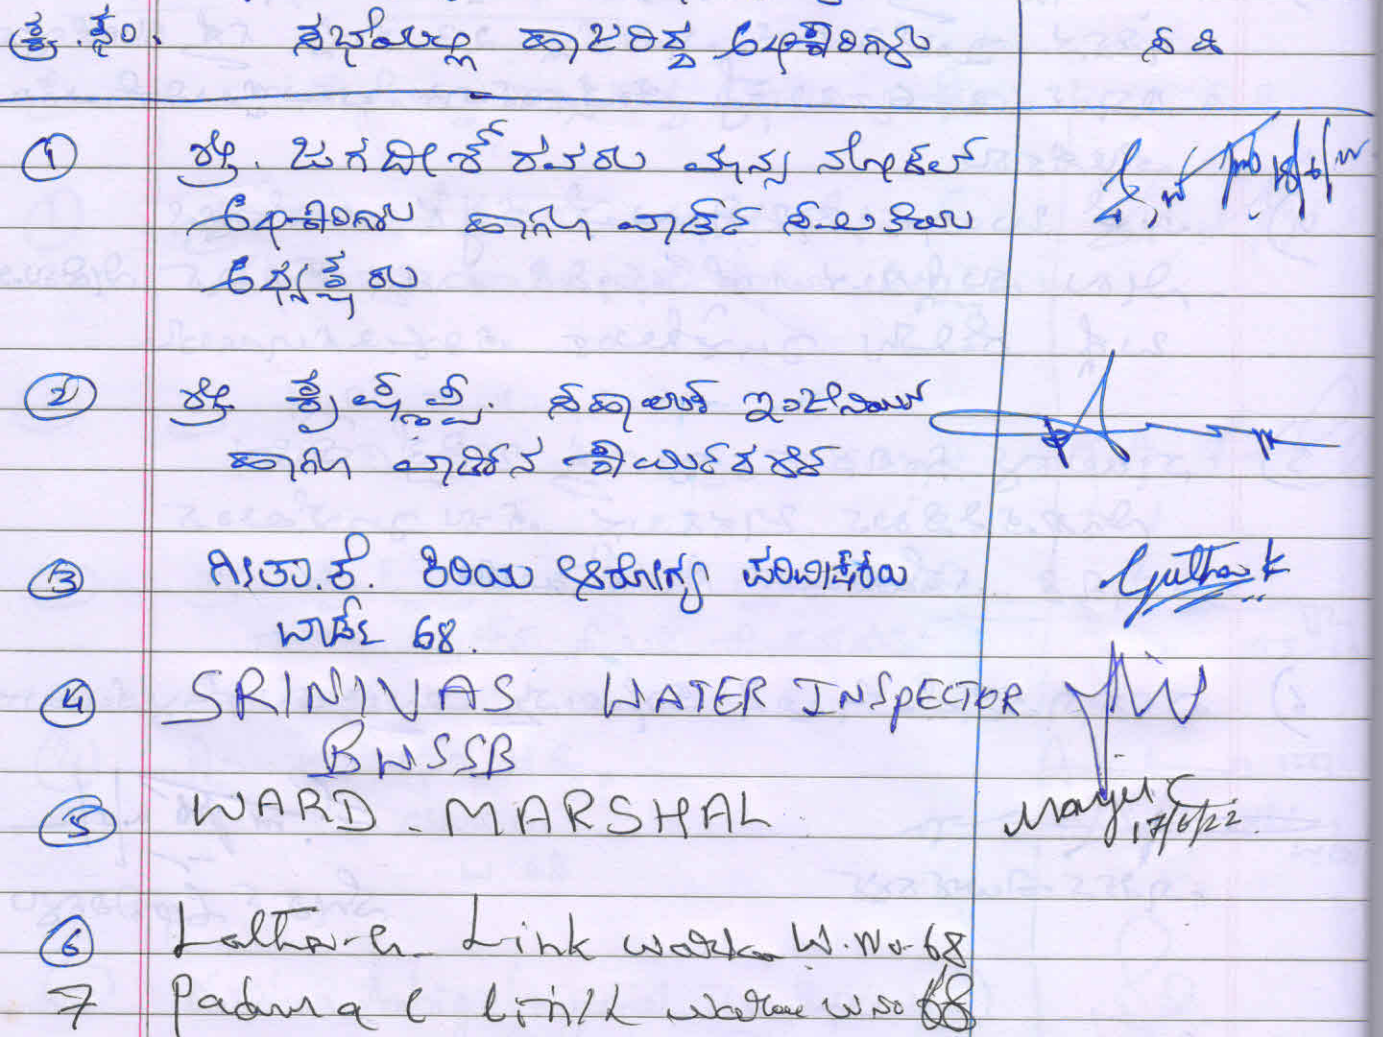 ಕ್ರ.ಸಂ. ಸಭೆಯಲ್ಲಿ ಹಾಜರಿದ್ದ ಅಧಿಕಾರಿಗಳು ಸಹಿ
① ಶ್ರೀ. ಜಗದೀಶ್ ರವರು ಮಾನ್ಯ ನೋಡಲ್
ಅಧಿಕಾರಿಗಳು ಹಾಗೂ ವಾರ್ಡ್ ಸಮಿತಿಯ
ಅಧ್ಯಕ್ಷರು
② ಶ್ರೀ ಕೃಷ್ಣಪ್ಪ. ಸಹಾಯಕ ಇಂಜಿನಿಯರ್
ಹಾಗೂ ವಾರ್ಡಿನ ಕಾರ್ಯದರ್ಶಿ
③ ಗೀತಾ.ಕೆ. ಕಿರಿಯ ಆರೋಗ್ಯ ಪರಿವೀಕ್ಷಕಿಯ Geetha K
ವಾರ್ಡ್ 68.
④ SRINIVAS WATER INSPECTOR
BWSSB
⑤ WARD. MARSHAL 17/6/22.
⑥ Link worker W.No-68
7 Padma C Link worker W No 68